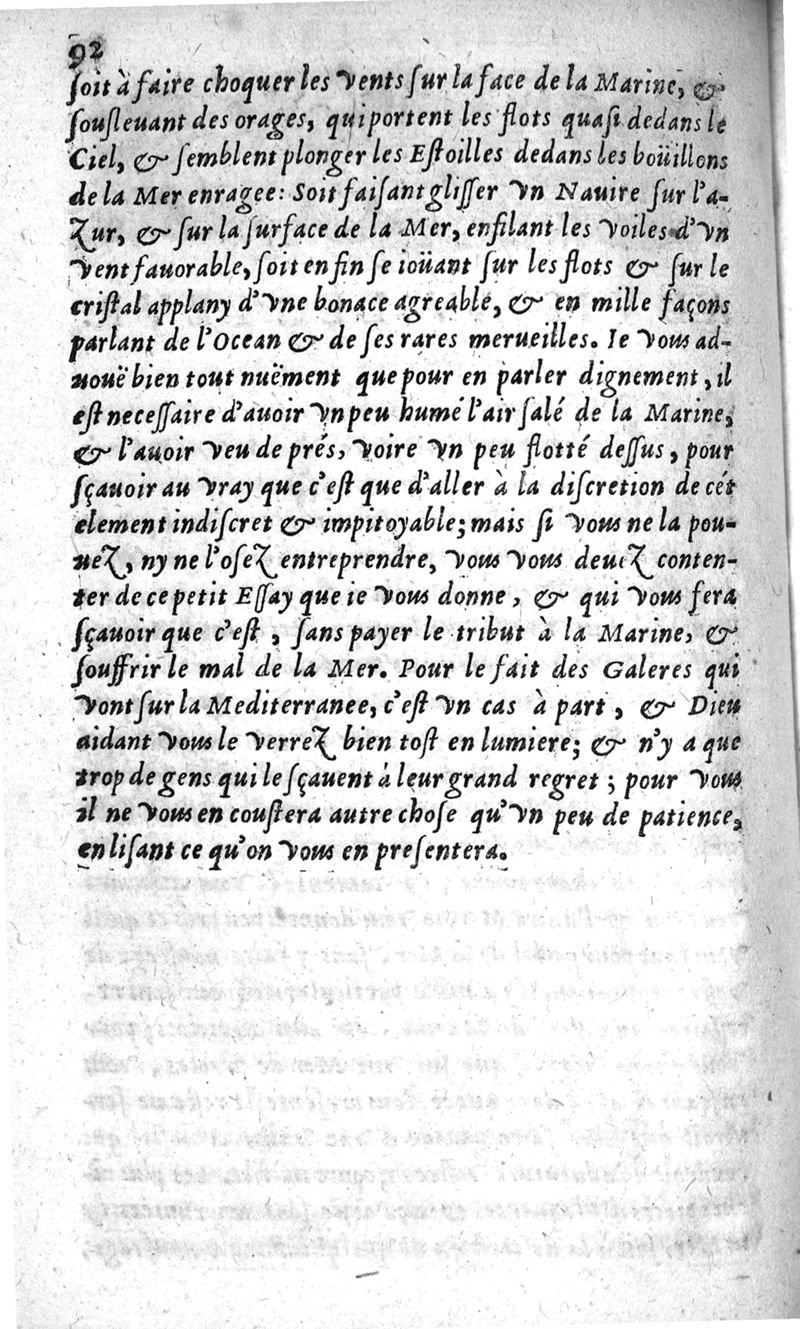 92
ſoit à faire choquer les vents ſur la face de la Marine, &
ſouſleuant des orages, qui portent les flots quaſi dedans le
Ciel, & ſemblent plonger les Eſtoilles dedans les boüillons
de la Mer enragee: Soit faiſant gliſſer vn Nauire ſur l'a-
zur, & ſur la ſurface de la Mer, enfilant les voiles d'vn
vent fauorable, ſoit enfin ſe ioüant ſur les flots & ſur le
criſtal applany d'vne bonace agreable, & en mille façons
parlant de l'Ocean & de ſes rares merueilles. Ie vous ad-
uouë bien tout nuëment que pour en parler dignement, il
eſt neceſſaire d'auoir vn peu humé l'air ſalé de la Marine,
& l'auoir veu de prés, voire vn peu flotté deſſus, pour
ſçauoir au vray que c'eſt que d'aller à la diſcretion de cét
element indiſcret & impitoyable; mais ſi vous ne la pou-
uez, ny ne l'oſez entreprendre, vous vous deuez conten-
ter de ce petit Eſſay que ie vous donne, & qui vous fera
ſçauoir que c'eſt, ſans payer le tribut à la Marine, &
ſouffrir le mal de la Mer. Pour le fait des Galeres qui
vont ſur la Mediterranee, c'eſt vn cas à part, & Dieu
aidant vous le verrez bien toſt en lumiere; & n'y a que
trop de gens qui le ſçauent à leur grand regret; pour vous
il ne vous en couſtera autre choſe qu'vn peu de patience,
en liſant ce qu'on vous en preſentera.